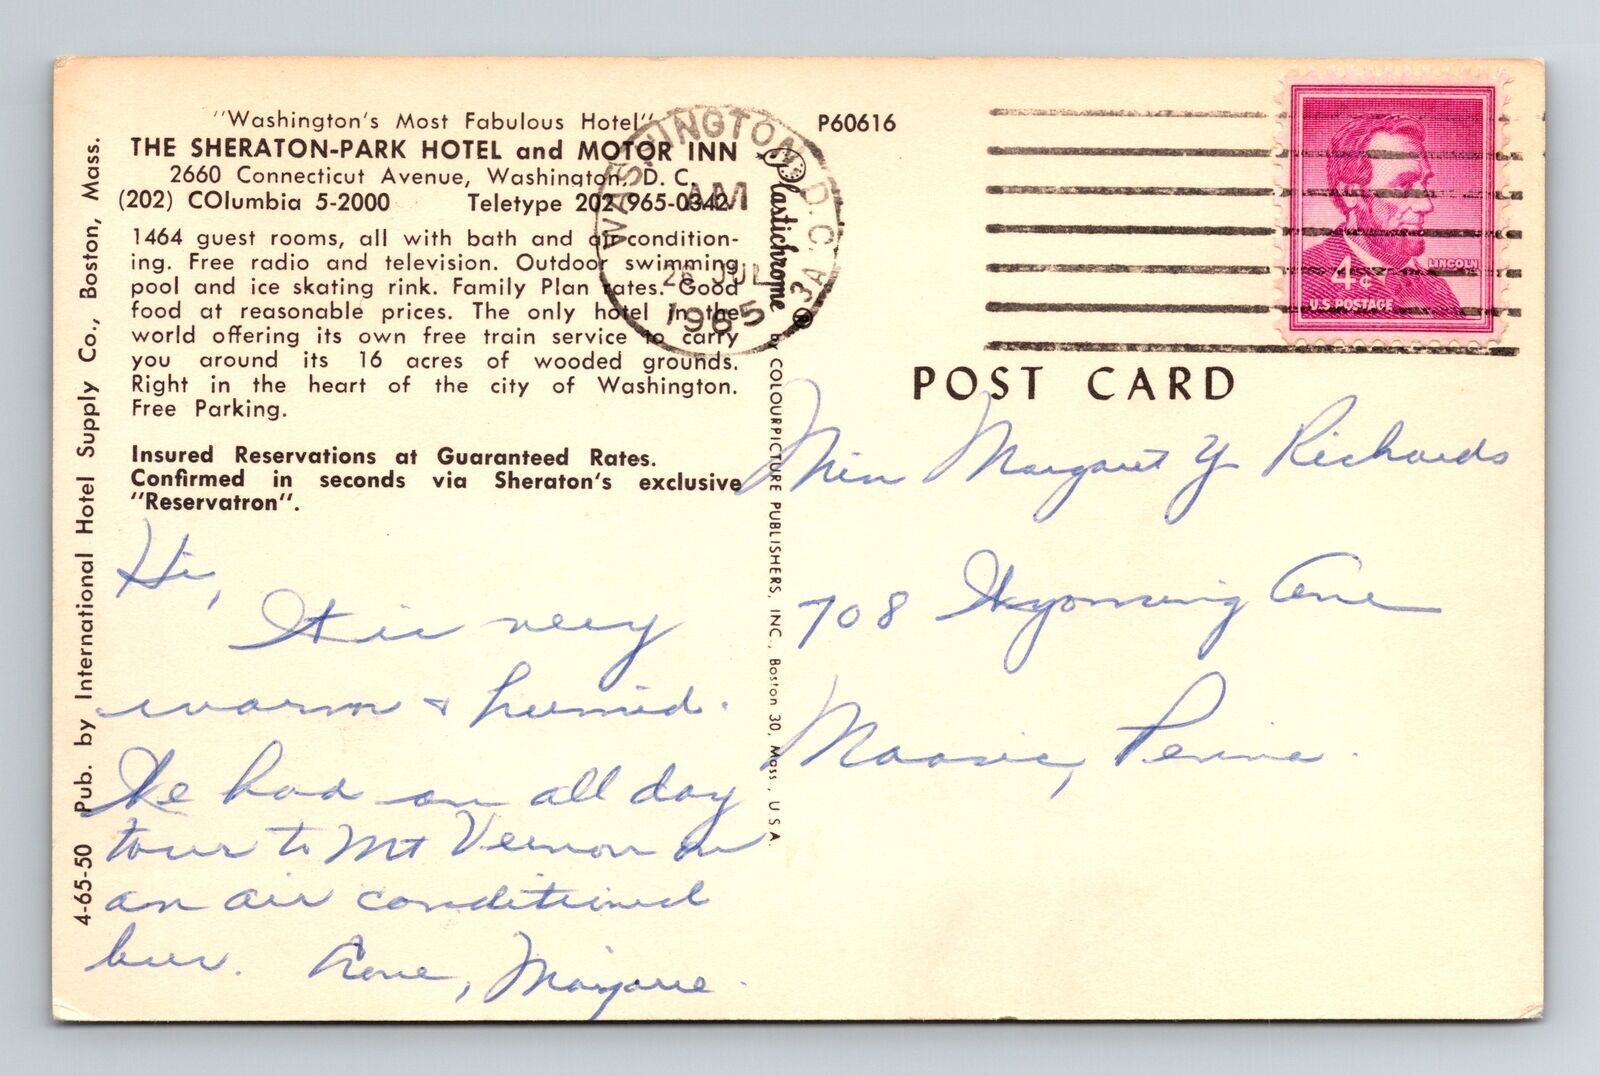 "Washington's Most Fabulous Hotel"
THE SHERATON-PARK HOTEL and MOTOR INN
2660 Connecticut Avenue, Washington, D. C.
(202) COlumbia 5-2000 Teletype 202 965-0342
1464 guest rooms, all with bath and air condition-
ing. Free radio and television. Outdoor swimming
pool and ice skating rink. Family Plan rates. Good
food at reasonable prices. The only hotel in the
world offering its own free train service to carry
you around its 16 acres of wooded grounds.
Right in the heart of the city of Washington.
Free Parking.
Insured Reservations at Guaranteed Rates.
Confirmed in seconds via Sheraton's exclusive
"Reservatron".
4-65-50 Pub. by International Hotel Supply Co., Boston, Mass.
Hi,
It is very
warm & humid.
We had an all day
tour to Mt Vernon in
an air conditioned
bus. Love, Marjorie.
Plastichrome® by COLOURPICTURE PUBLISHERS, INC., Boston 30, Mass., U.S.A.
P60616
WASHINGTON, D.C.
AM
26 JUL
1965
3A
4¢
LINCOLN
U.S. POSTAGE
POST CARD
Miss Margaret Y Richards
708 Wyoming Ave
Moosic, Penna.